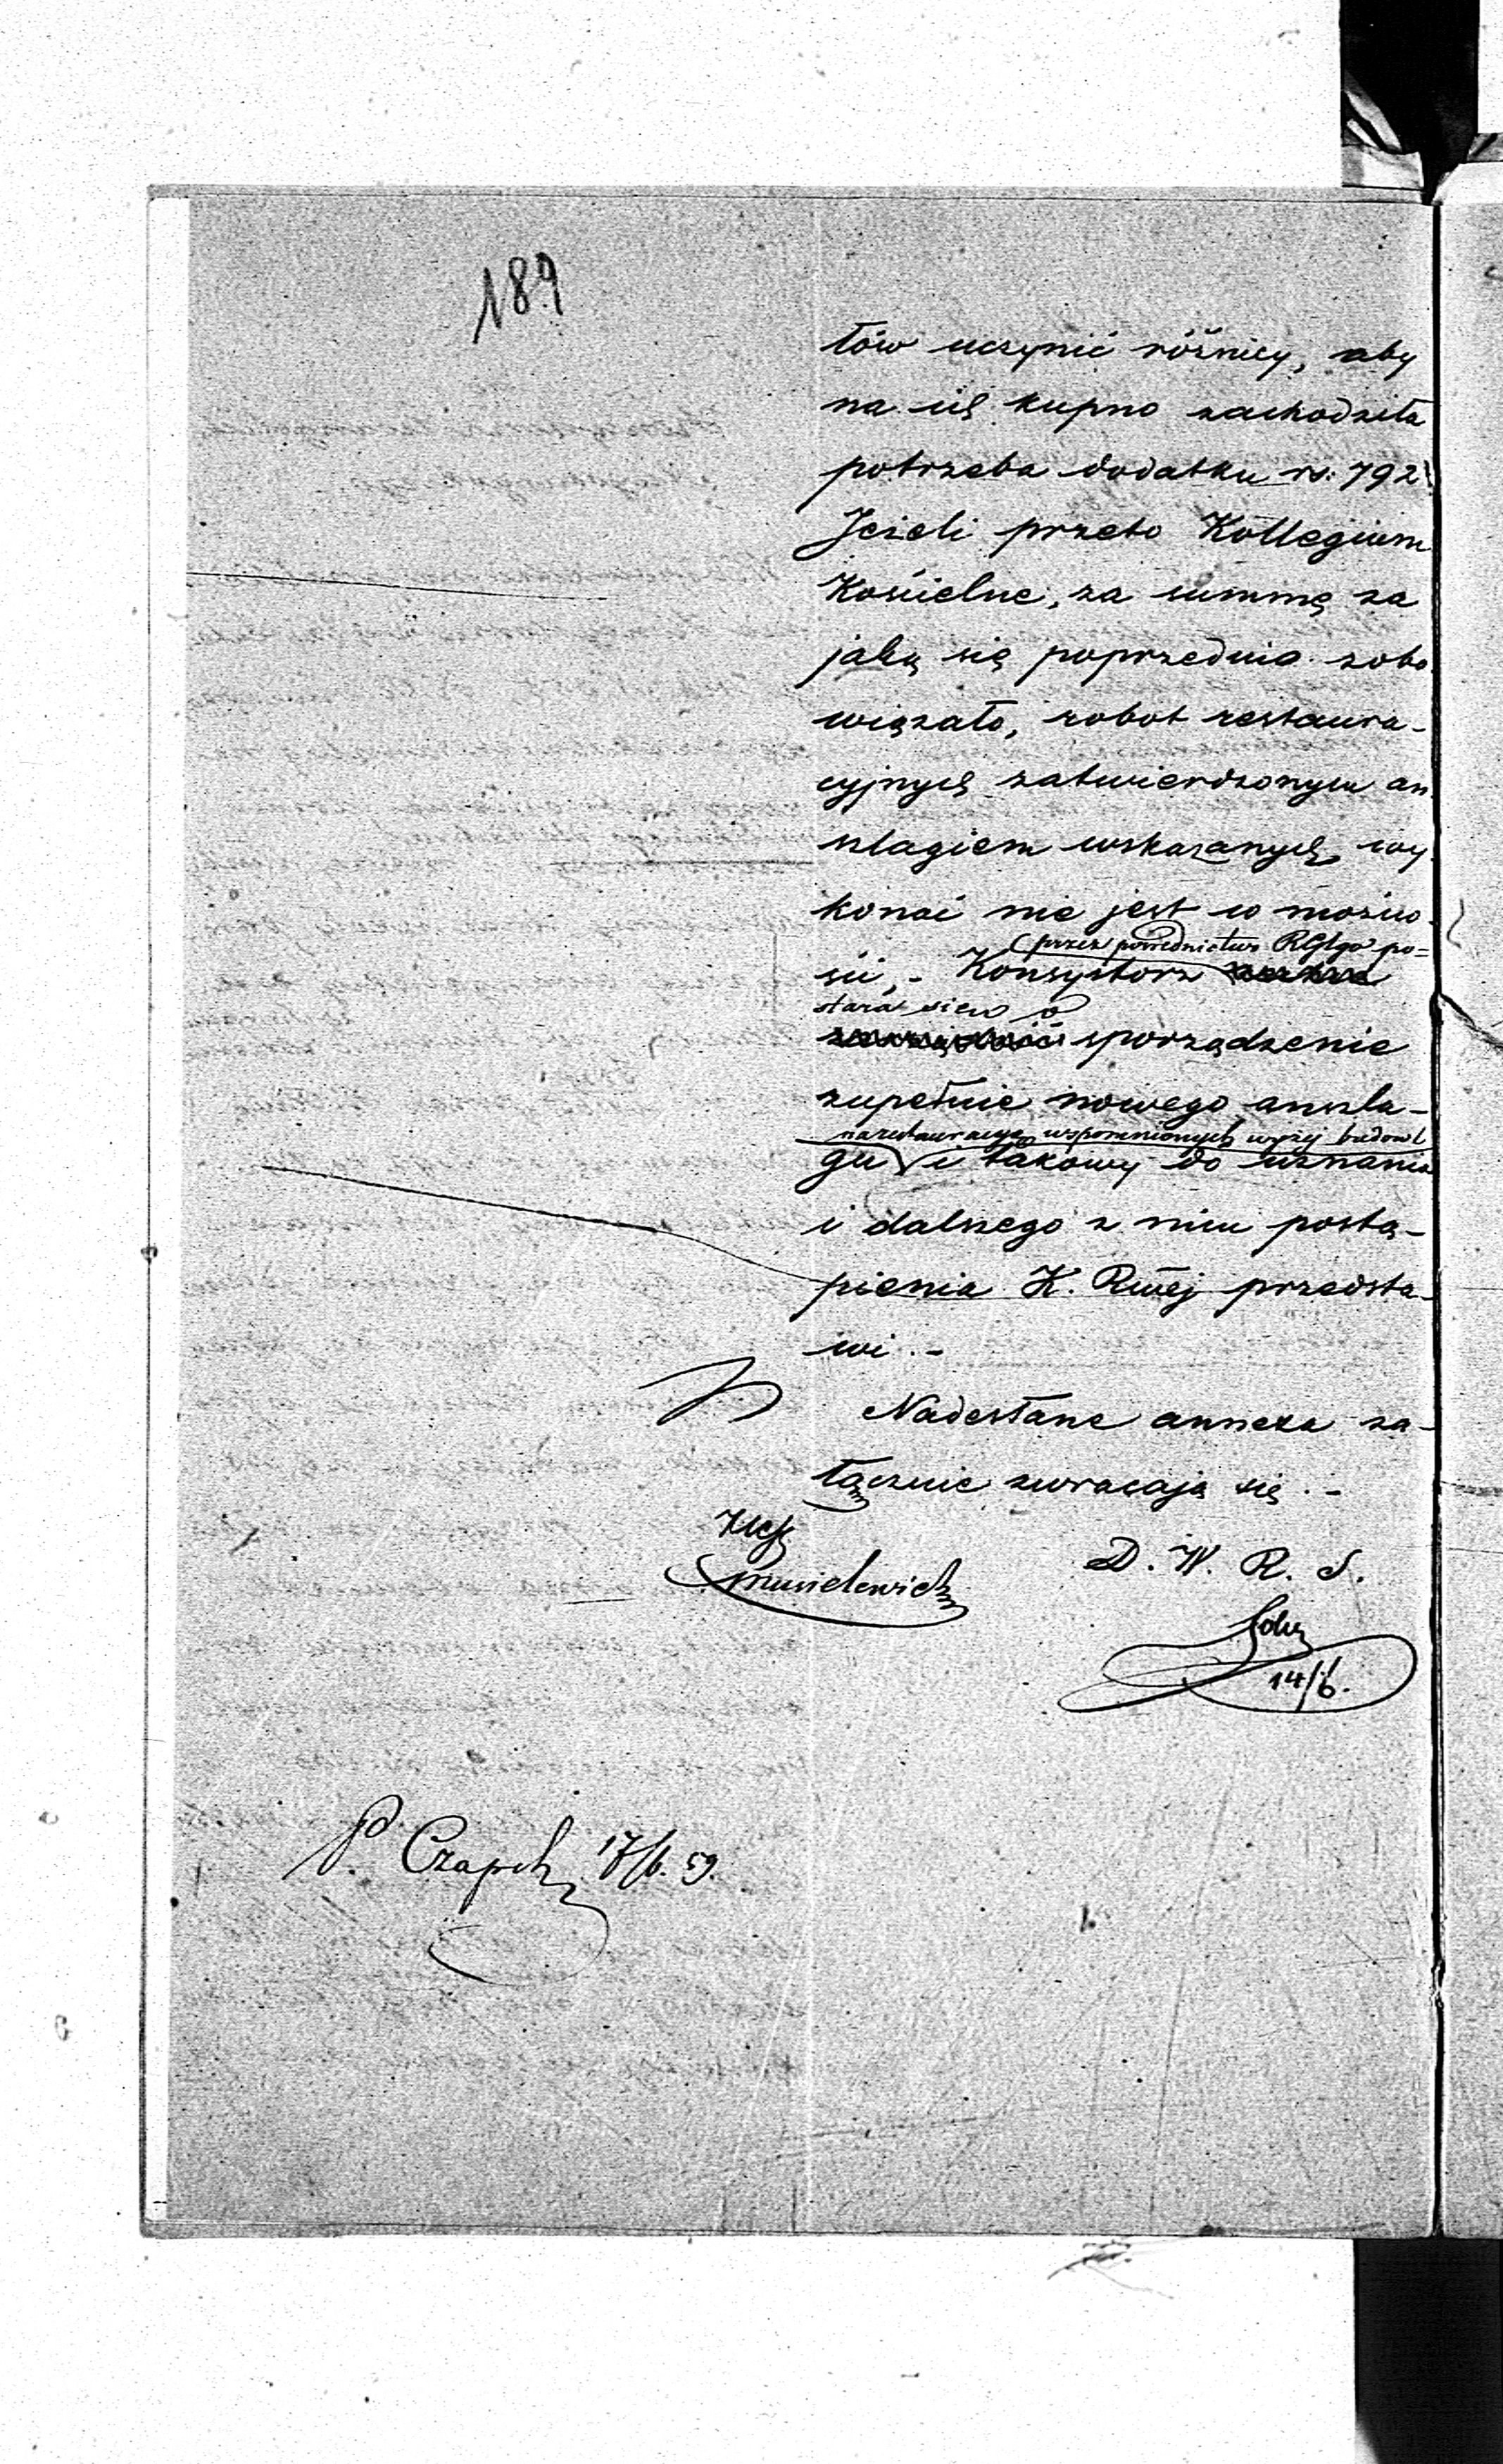 189
tów uczynić różnicy, aby
na ich kupno zachodziła
potrzeba dodatku rs: 792
Jeżeli przeto Kollegium
Kościelne, za summę za
jaką się poprzednio zobo
wiązało, robot restaura-
cyjnych zatwierdzonym an
szlagiem wskazanych wy
konać nie jest w możno-
(przez pośrednictwo RGlgo po-
ści, - Konsystorz
stara się o
sporządzenie
zupełnie nowego anszla-
na restauracyę wspomnionych wyżej budowl
gu i takowy do uznania
i dalszego z nim postą-
pienia K. Rwej przedsta-
wi. -
Nadesłane annexa za-
łącznie zwracają się. -
D. W. R. S.
14/6.
P. Czaps 17/6. 59.